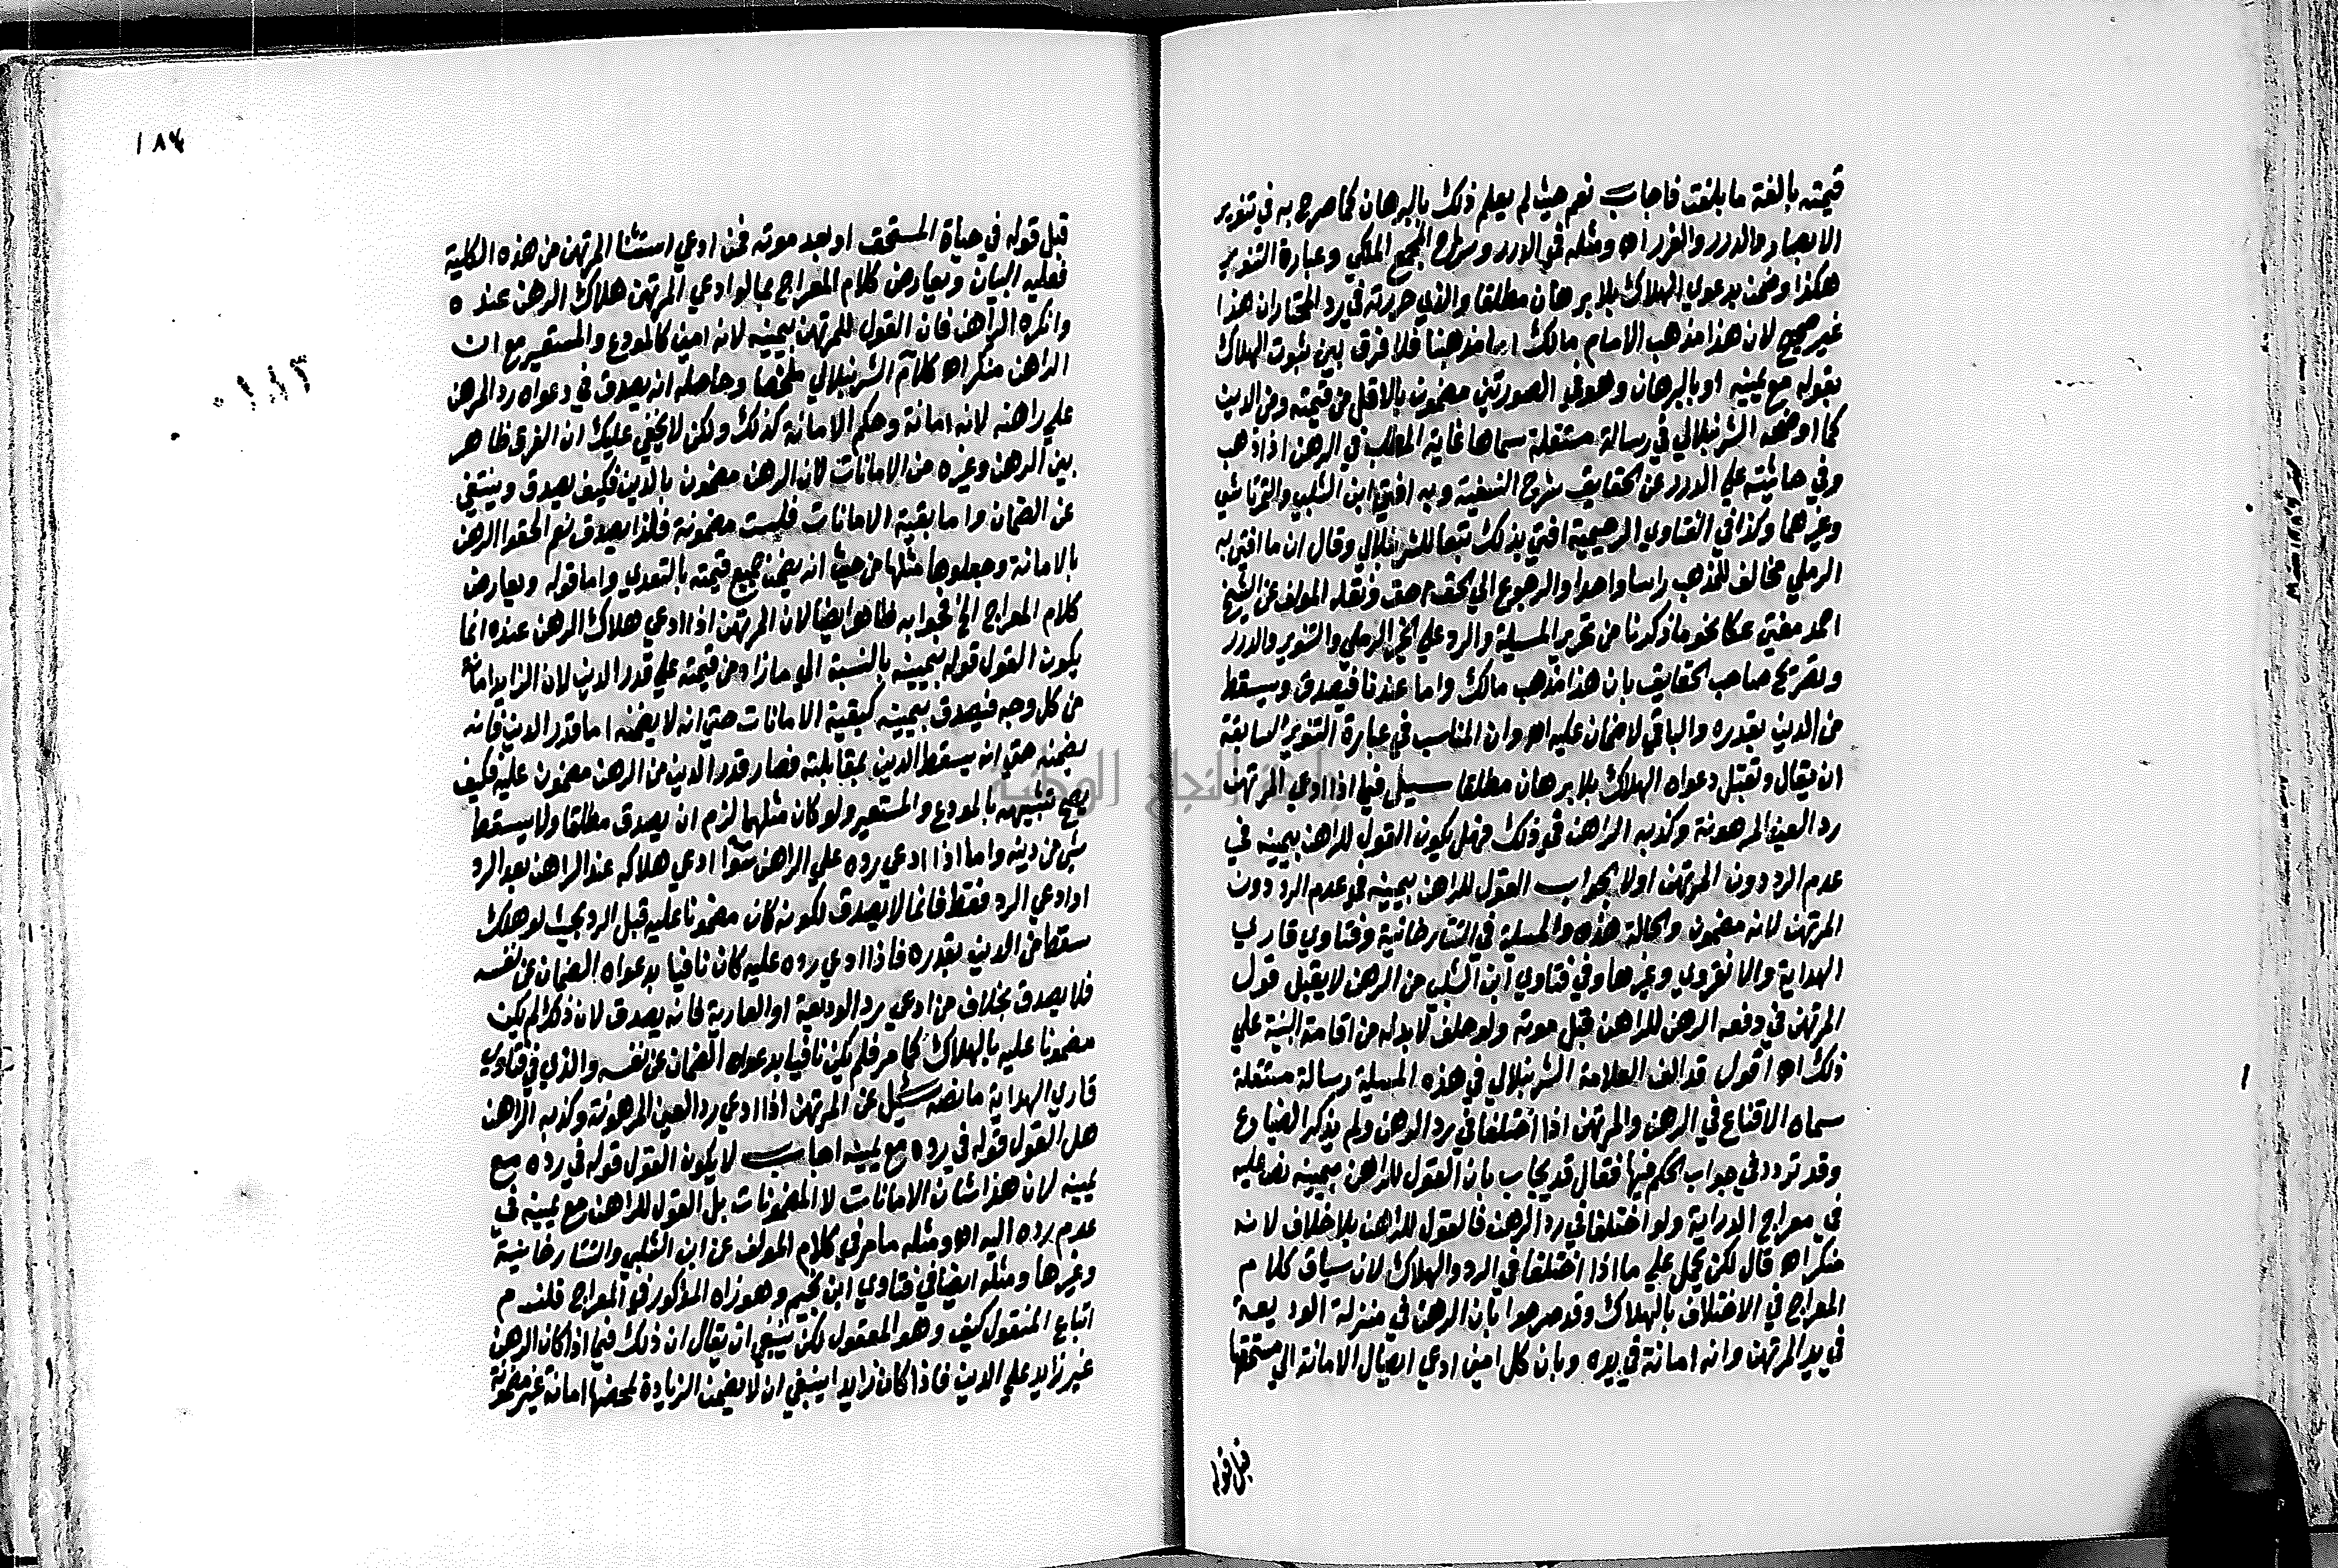 قيمته بالغة ما بلغت فاجاب نعم حيث لم يعلم ذلك بالبرهان كما صرح به في تنوير
الابصار والدرر والغرر اه ومثله في الدرر وشرح المجمع الملكي وعبارة التنوير
هكذا وضمن بدعوي الهلاك بلا برهان مطلقا والذي حررته في رد المحتار ان هذا
غير صحيح لان هذا مذهب الامام مالك اما مذهبنا فلا فرق بين ثبوت الهلاك
بقوله مع يمينه او بالبرهان وهو في الصورتين مضمون بالاقل من قيمته ومن الدين
كما اوضحه الشرنبلالي في رسالة مستقلة سماها غاية المطلب في الرهن اذا ذهب
وفي حاشيته علي الدرر عن الحقايق شرح النسفية وبه افتي ابن الشلبي والتمرتاشي
وغيرهما وكذا في الفتاوي الرحيمية افتي بذلك تبعا للشرنبلالي وقال ان ما افتي به
الرملي مخالف للمذهب راسا واحدا والرجوع الي الحق احق ونقله المولف عن الشيخ
احمد مفتي عكا نحو ما ذكرنا من تحرير المسيلة والرد علي الخير الرملي والتنوير والدرر
وتصريح صاحب الحقايق بان هذا مذهب مالك واما عندنا فيصدق ويسقط
من الدين بقدره والباقي لا ضمان عليه اه وان المناسب في عبارة التنوير السابقة
ان يقال وتقبل دعواه الهلاك بلا برهان مطلقا سيل فيما اذا ادعي المرتهن
رد العين المرهونة وكذبه الراهن في ذلك فهل يكون القول للراهن بيمينه في
عدم الرد دون المرتهن اولا الجواب القول للراهن بيمينه في عدم الرد دون
المرتهن لانه مضمون والحالة هذه والمسيلة في التتارخانية وفتاوي قاري
الهداية والانقروي وغيرها وفي فتاوي ابن الشلبي من الرهن لا يقبل قول
المرتهن في دفعه الرهن للراهن قبل موته ولو حلف لا بد له من اقامة البينة علي
ذلك اه اقول قد الف العلامة الشرنبلالي في هذه المسيلة رسالة مستقلة
سماه الاقناع في الرهن والمرتهن اذا اختلفا في رد الرهن ولم يذكر الضياع
وقد تردد في جواب الحكم فيها فقال قد يجاب بان القول للراهن بيمينه نص عليه
في معراج الدراية ولو اختلفا في رد الرهن فالقول للراهن بلا خلاف لانه
منكر اه قال لكن يحمل علي ما اذا اختلفا في الرد والهلاك لان سياق كلام
المعراج في الاختلاف بالهلاك وقد صرحوا بان الرهن في منزلة الوديعة
في يد المرتهن وانه امانة في يده وبان كل امين ادعي ايصال الامانة الي مستحقها
قبل قوله
١٨٤
قبل قوله في حياة المستحق او بعد موته فمن ادعي استثنا المرتهن من هذه الكلية
فعليه البيان ويعارض كلام المعراج بما لو ادعي المرتهن هلاك الرهن عنده
وانكره الراهن فان القول للمرتهن بيمينه لانه امين كالمودع والمستعير مع ان
الراهن منكر اه كلام الشرنبلالي ملخصا وحاصله انه يصدق في دعواه رد الرهن
علي راهنه لانه امانة وحكم الامانة كذلك ولكن لا يخفي عليك ان الفرق ظاهر
بين الرهن وغيره من الامانات لان الرهن مضمون بالدين فكيف يصدق وينتفي
عن الضمان واما بقية الامانات فليست مضمونة فلذا يصدق نعم الحقوا الرهن
بالامانة وجعلوها مثلها من حيث انه يضمن جميع قيمته بالتعدي واما قوله ويعارض
كلام المعراج الخ فجوابه ظاهر ايضا لان المرتهن اذا ادعي هلاك الرهن عنده انما
يكون القول قوله بيمينه بالنسبة الي ما زاد من قيمته علي قدر الدين لان الزايد امانة
من كل وجه فيصدق بيمينه كبقية الامانات حتي انه لا يضمنه اما قدر الدين فانه
يضمنه حتي انه يسقط الدين بمقابلته فصار قدر الدين من الرهن مضمون عليه فكيف
يصح تشبيهه بالمودع والمستعير ولو كان مثلهما لزم ان يصدق مطلقا ولا يسقط
شي من دينه واما اذا ادعي رده علي الراهن سوآ ادعي هلاكه عند الراهن بعد الرد
او ادعي الرد فقط فانما لا يصدق لكونه كان مضمونا عليه قبل الرد بحيث لو هلك
سقط من الدين بقدره فاذا ادعي رده عليه كان نافيا بدعواه الضمان عن نفسه
فلا يصدق بخلاف من ادعي رد الوديعة او العارية فانه يصدق لان ذلك لم يكن
مضمونا عليه بالهلاك كما مر فلم يكن نافيا بدعواه الضمان عن نفسه والذي في فتاوي
قاري الهداية ما نصه سيل عن المرتهن اذا ادعي رد العين المرهونة وكذبه الراهن
هل القول قوله في رده مع يمينه اجاب لا يكون القول قوله في رده مع
يمينه لان هذا شان الامانات لا المضمونات بل القول للراهن مع يمينه في
عدم رده اليه اه ومثله ما مر في كلام المولف عن ابن الشلبي والتتارخانية
وغيرها ومثله ايضا في فتاوي ابن نجيم وهوزاه المذكور في المعراج فلندم
اتباع المنقول كيف وهو المعقول لكن ينبغي ان يقال ان ذلك فيما اذا كان الرهن
غير زايد علي الدين فاذا كان زايدا ينبغي ان لا يضمن الزيادة لمحضها امانة غير مضمونة
جامعة النجاح الوطنية